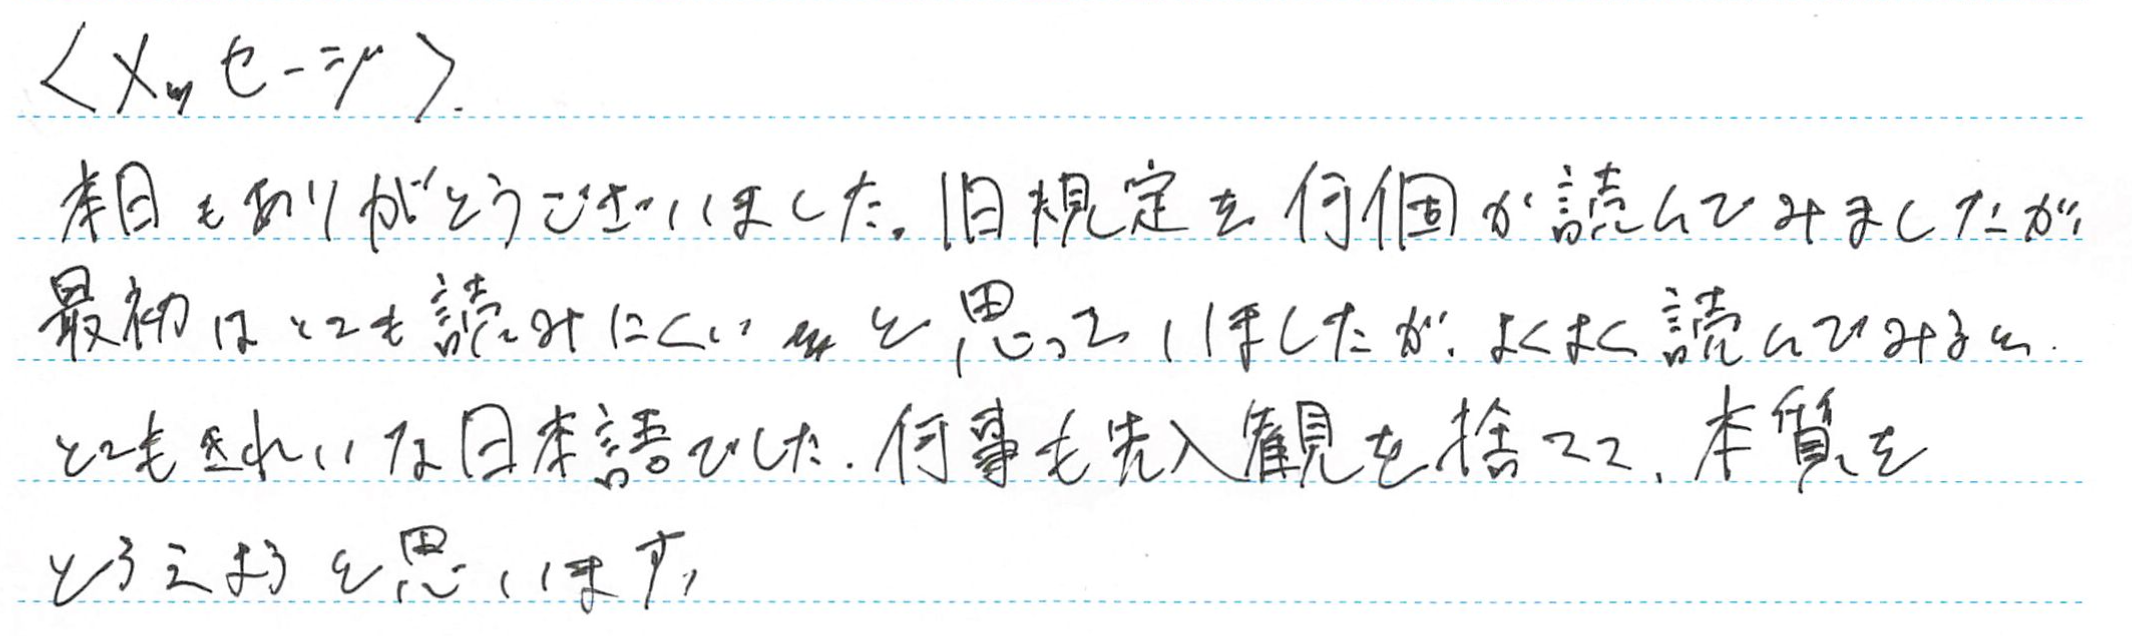 〈メッセージ〉.
本日もありがとうございました。旧規定を何個か読んでみましたが、
最初はとても読みにくいと思っていましたが、よくよく読んでみると、
とてもきれいな日本語でした。何事も先入観を捨てて、本質を
とらえようと思います。